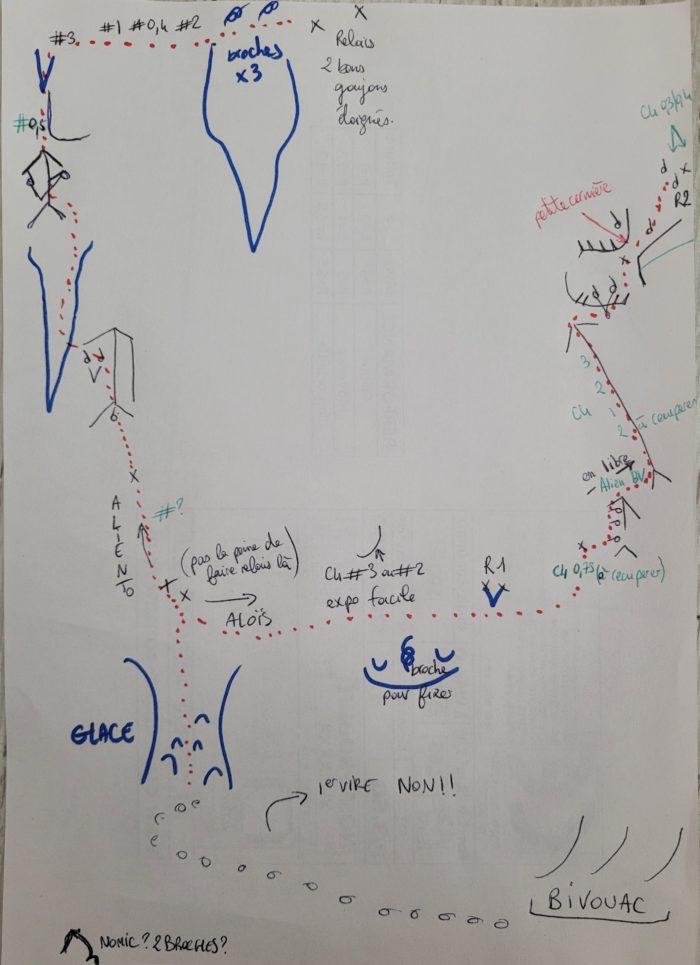 #3 #1 #0,4 #2
broches
x3
Relais
2 bons
goujons
éloignés.
#0,5
Ch 0,3/0,4
petite cornière
R2
3
2
1
2
Ch
à récupérer
en libre
Alien BV
Ch 0,75 (à récupérer)
ALIENTO
#?
(pas la peine de
faire relais là)
ALOÏS
Ch #3 ou #2
expo facile
R1
broche
pour fixer
GLACE
1er VIRE NON!!
BIVOUAC
NOMIC? 2 BROCHES?